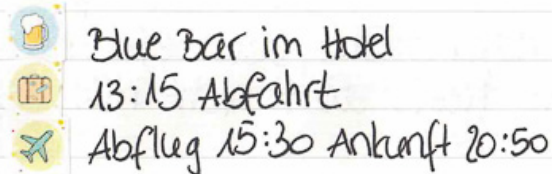 Blue Bar im Hotel
13:15 Abfahrt
Abflug 15:30 Ankunft 20:50